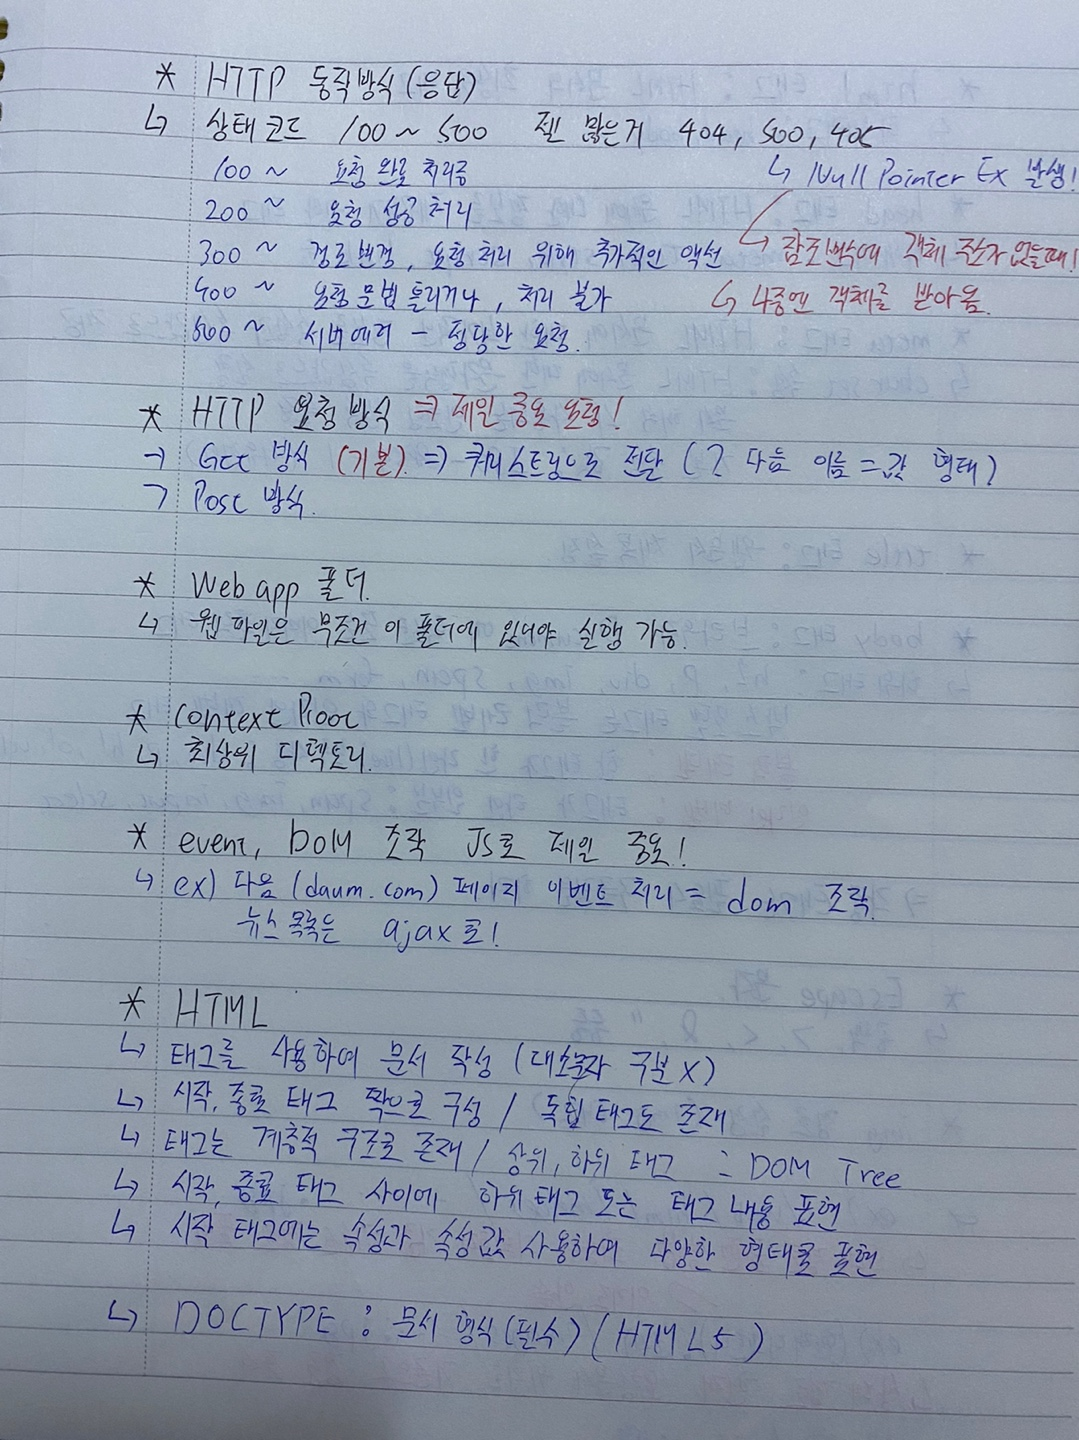 * HTTP 동작방식(응답)
↳ 상태코드 100 ~ 500 젤 많은거 404, 500, 405
100 ~ 요청 완료 처리중 ↳ Null Pointer Ex 발생!
200 ~ 요청 성공 처리
300 ~ 경로변경, 요청 처리 위해 추가적인 액션 ↳ 참조변수에 객체 주소가 없을때!
400 ~ 요청 문법 틀리거나, 처리 불가 ↳ 나중엔 객체를 받아옴.
500 ~ 서버에러 - 정당한 요청.
* HTTP 요청 방식 ⇒ 제일 중요 요청!
→ Get 방식 (기본) ⇒ 쿼리스트링으로 전달 (? 다음 이름 = 값 형태)
→ Post 방식.
* Web app 폴더.
↳ 웹 파일은 무조건 이 폴더에 있어야 실행 가능.
* Context Root
↳ 최상위 디렉토리.
* event, DOM 조작 JS로 제일 중요!
↳ ex) 다음 (daum.com) 페이지 이벤트 처리 = dom 조작.
뉴스 목록은 ajax로!
* HTML
↳ 태그를 사용하여 문서 작성 (대소문자 구분 X)
↳ 시작, 종료 태그 짝으로 구성 / 독립 태그도 존재
↳ 태그는 계층적 구조로 존재 / 상위, 하위 태그 = DOM Tree
↳ 시작, 종료 태그 사이에 하위 태그 또는 태그 내용 표현
↳ 시작 태그에는 속성과 속성값 사용하여 다양한 형태로 표현
↳ DOCTYPE : 문서 형식 (필수) (HTML 5)